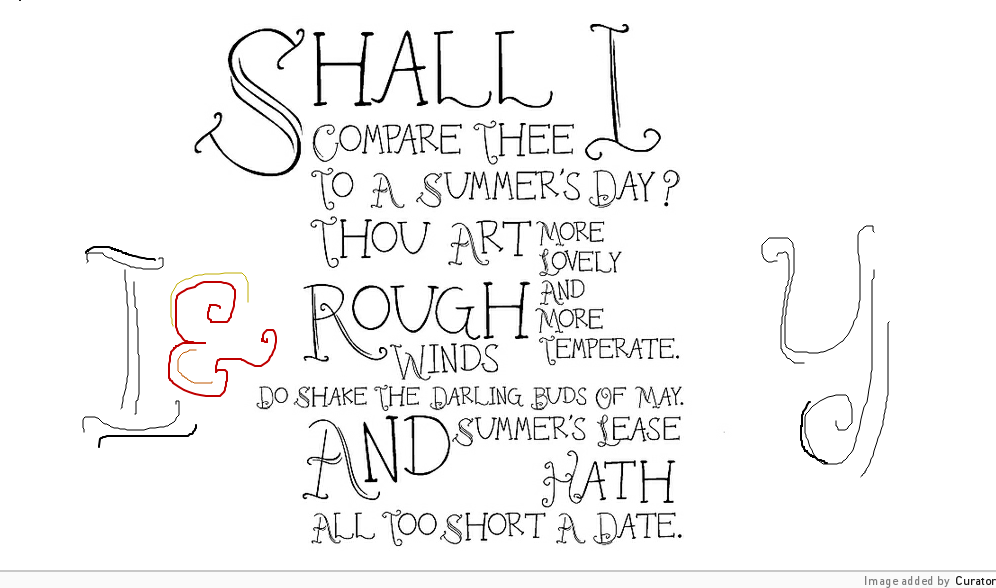 SHALL I
COMPARE THEE
TO A SUMMER'S DAY?
THOU ART MORE
LOVELY
AND
MORE
TEMPERATE.
ROUGH
WINDS
DO SHAKE THE DARLING BUDS OF MAY.
AND SUMMER'S LEASE
HATH
ALL TOO SHORT A DATE.
I &
y
Image added by Curator